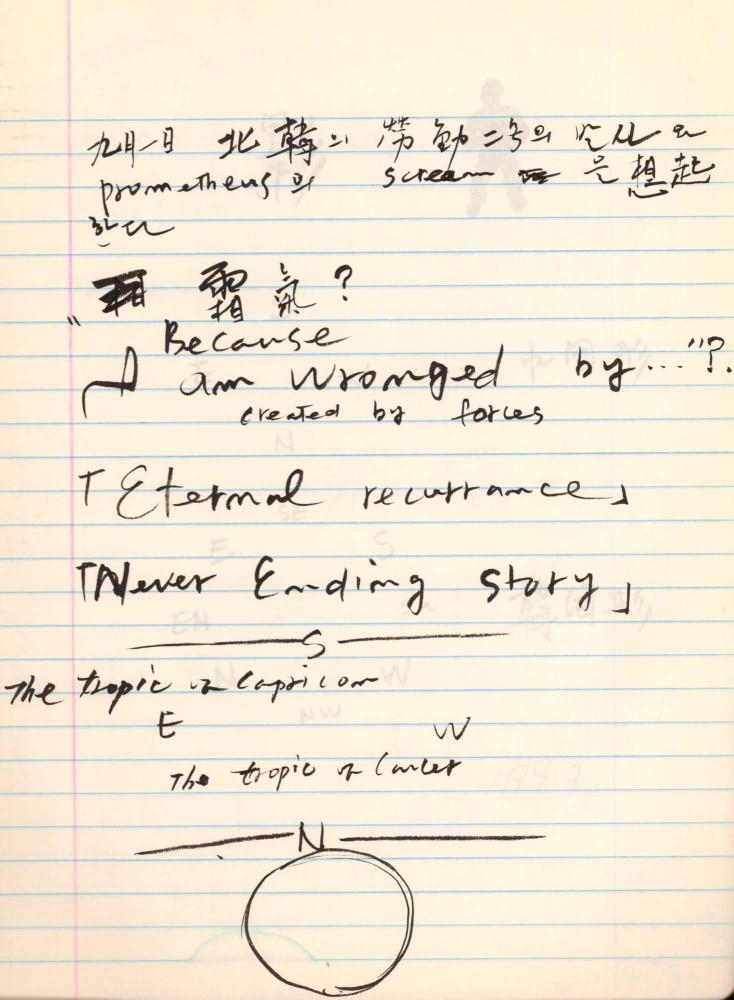 九月一日 北韓의 勞動二号의 발사로
prometheus의 scream 은 想起
한다
霜氣?
"Because
I am wronged by..."?
created by forces
「Eternal recurrance」
「Never Ending Story」
S
The tropic of Capricorn
E W
The tropic of Cancer
N